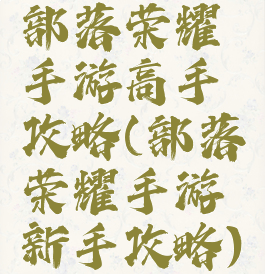 部落荣耀
手游高手
攻略(部落
荣耀手游
新手攻略)